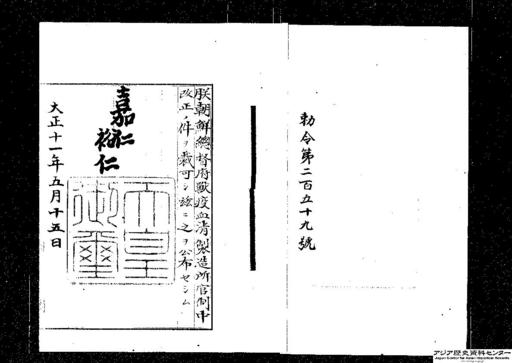 勅令第二百五十九號
朕朝鮮總督府獸疫血清製造所官制中
改正ノ件ヲ裁可シ茲ニ之ヲ公布セシム
嘉仁
裕仁
天皇
御璽
大正十一年五月十五日
アジア歴史資料センター
Japan Center for Asian Historical Records